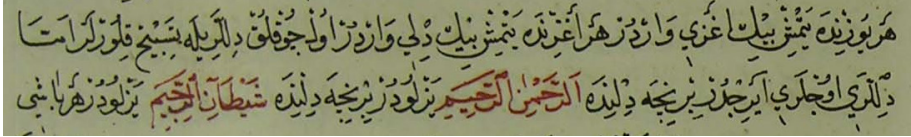 هر يوزنده يتمش بيك اغزي واردر هر اغزنده يتمش بيك دلي واردر اول جوقلق دللريله تسبيح قلورلر امتا
دللري اوجلري ايرجلدر بر نيجه دلنده الرحمن الرحيم يزلودر بر نيجه دلنده شيطان الرجيم يزلودر هر باشي